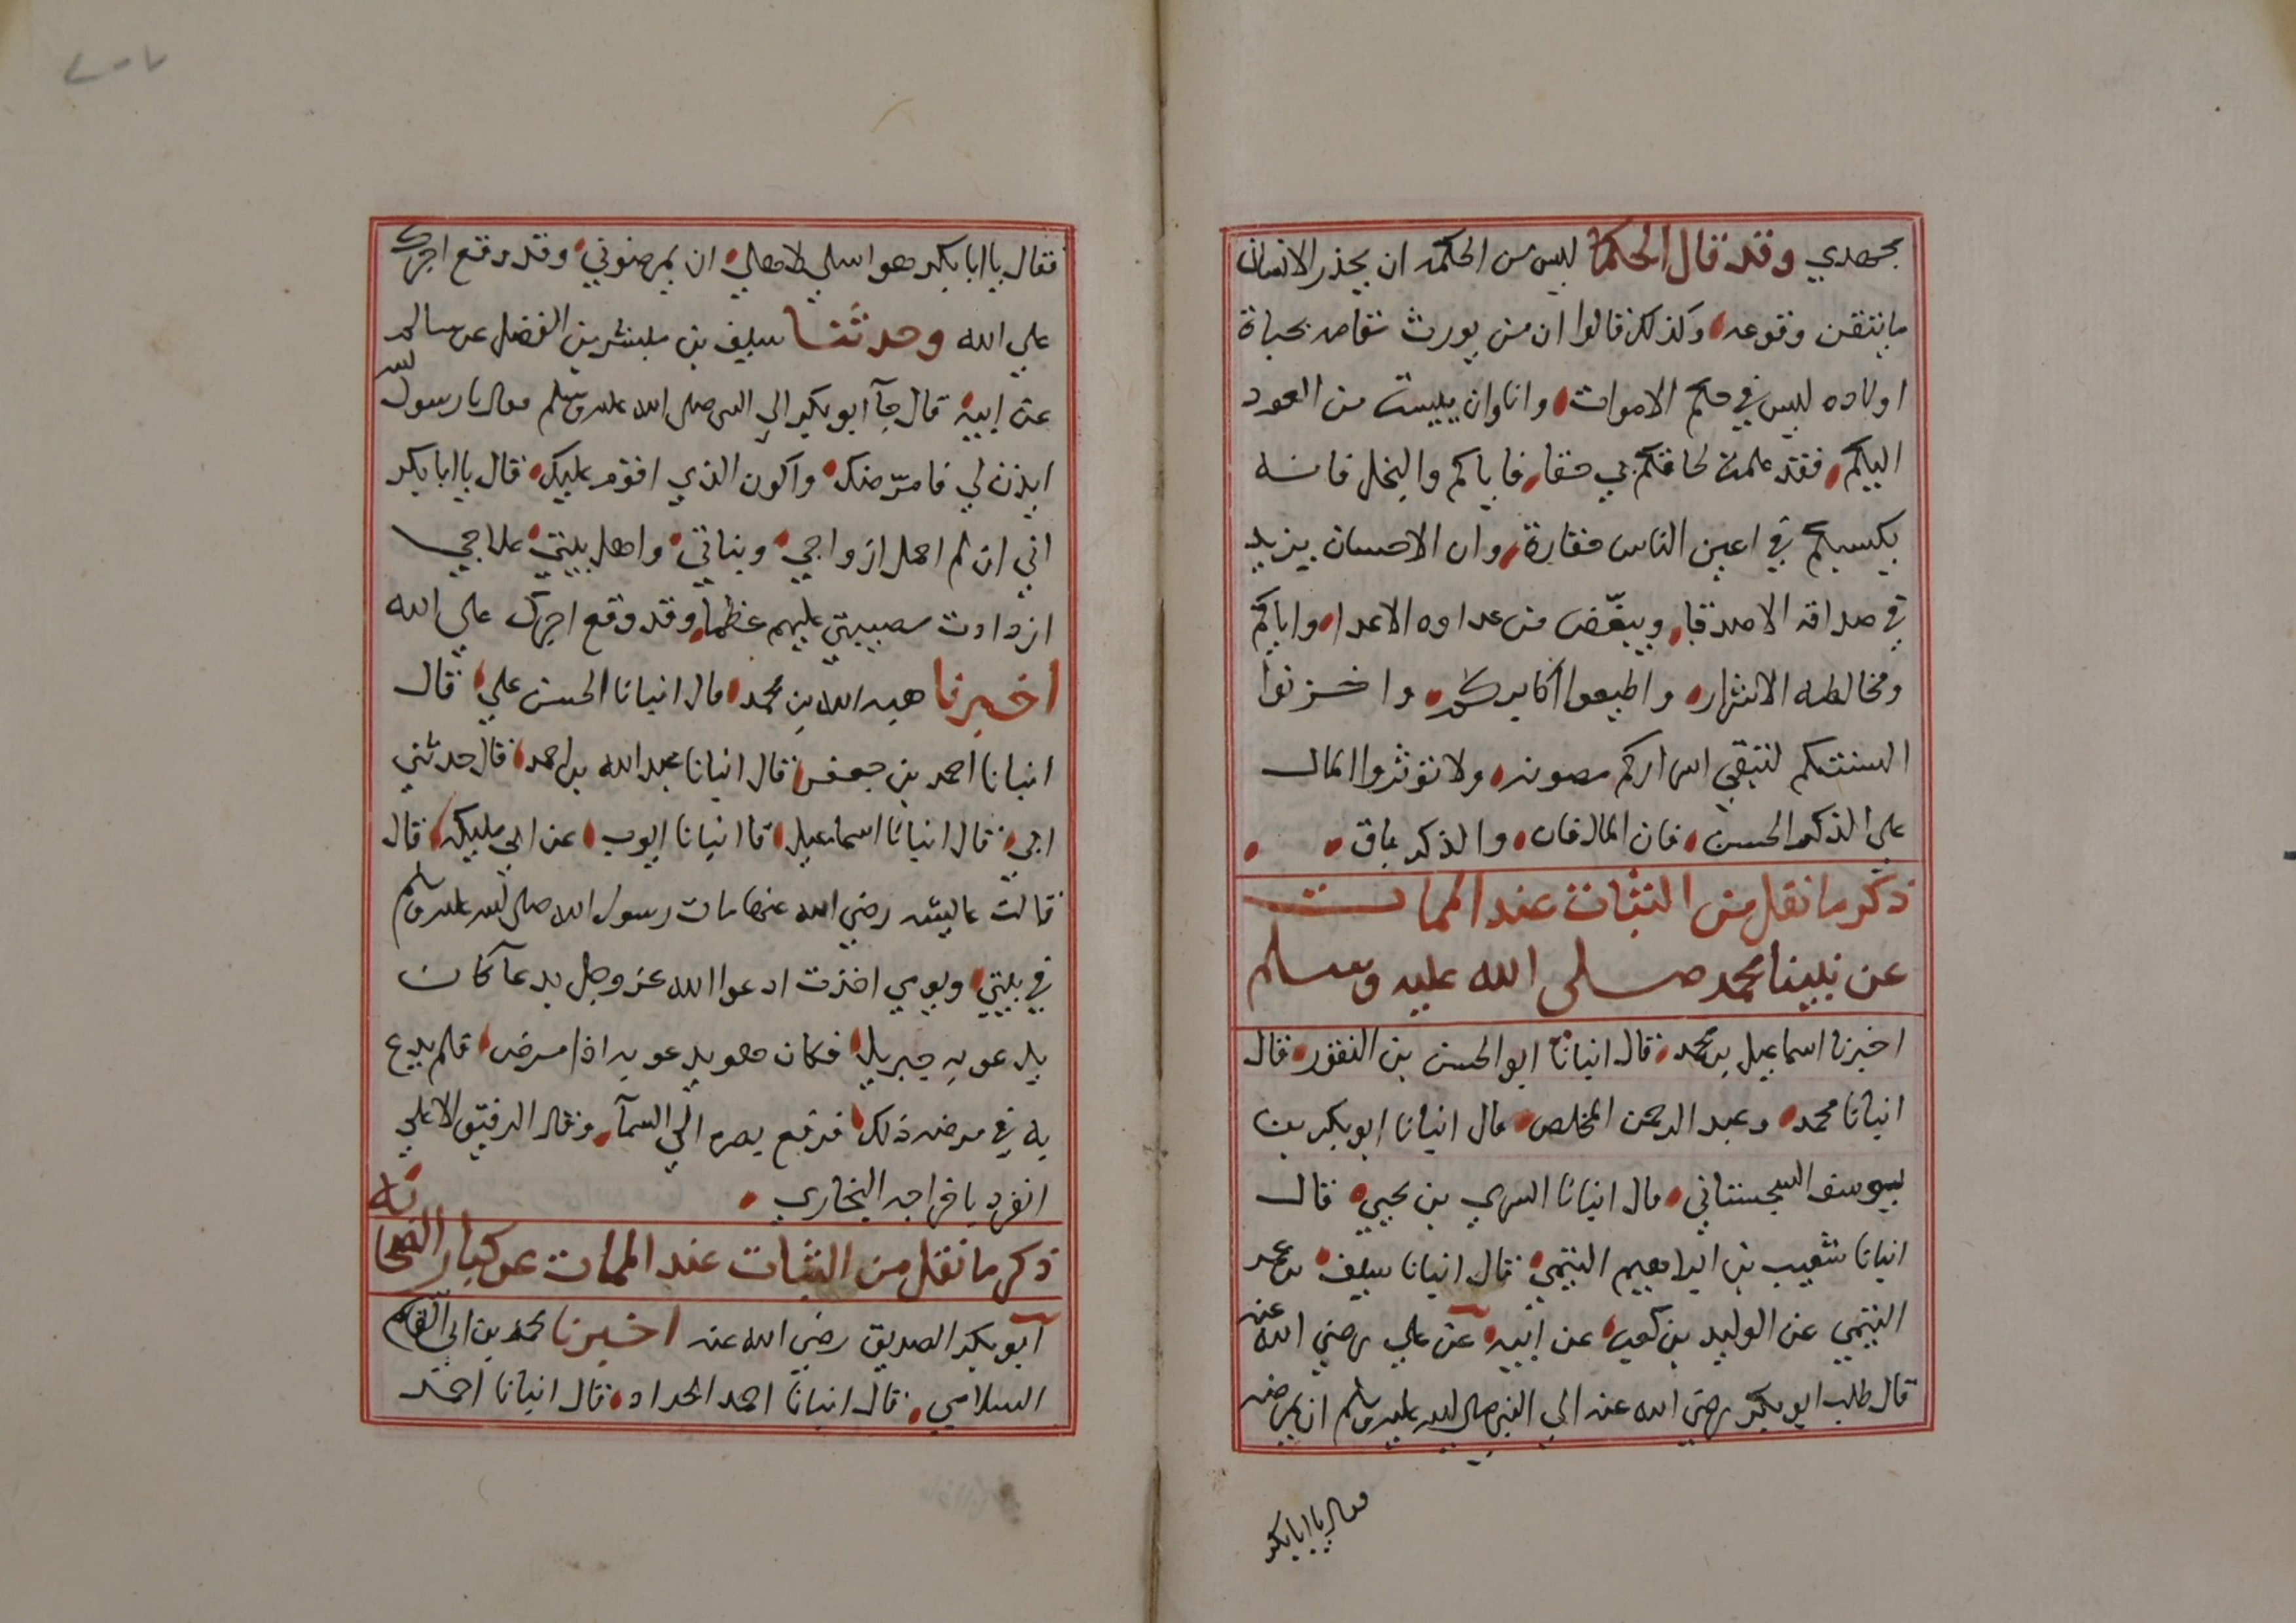 بجهدي وقد قال الحكما ليس من الحكمه ان يحذر الانسان
ما يتقن وقوعه وكذلك قالوا ان من يورث تقاصر بحياة
اولاده ليس في حكم الاموات وانا وان يبست من العود
اليكم فقد علمت لحاقكم بي حقا فاياكم والبخل فانه
يكسبكم في اعين الناس حقارة وان الاحسان يزيد
في صداقه الاصدقا وينقص من عداوه الاعدا واياكم
ومخالطه الاشرار واطيعوا اكابركم واخزنوا
السنتكم لتبقي اسراركم مصونه ولا تؤثروا المال
علي الذكر الحسن فان المال فان والذكر باق
ذكر ما نقل من الثبات عند الممات
عن نبينا محمد صلى الله عليه وسلم
اخبرنا اسماعيل بن محمد قال انبانا ابو الحسن بن النقور قال
انبانا محمد وعبد الرحمن المخلص قال انبانا ابو بكر بن
يوسف السجستاني قال انبانا السري بن يحيي قال
انبانا شعيب بن ابراهيم التيمي قال انبانا سيف بن عمر
التيمي عن الوليد بن كعب عن ابيه عن علي رضي الله عنه
قال طلب ابو بكر رضي الله عنه الي النبي صلى الله عليه وسلم ان يمرضه
فقال يا ابا بكر
فقال يا ابا بكر هو اسلي لاهلي ان يمرضوني وقد وقع اجرك
علي الله وحدثنا سيف بن مبشر بن الفضل عن سالم
عن ابيه قال جآ ابو بكر الي النبي صلى الله عليه وسلم فقال يا رسول الله
ايذن لي فامرّضك واكون الذي اقوم عليك قال يا ابا بكر
اني ان لم احمل ازواجي وبناتي واهل بيتي علاجي
ازدادت مصيبتي عليهم عظما وقد وقع اجرك علي الله
اخبرنا هبه الله بن محمد قال انبانا الحسن علي قال
انبانا احمد بن جعفر قال انبانا عبد الله بن احمد قال حدثني
ابي قال انبانا اسماعيل قا انبانا ايوب عن ابي مليكه قال
قالت عايشه رضي الله عنها مات رسول الله صلى الله عليه وسلم
في بيتي ويومي اخذت ادعوا الله عز وجل بدعآ كان
يدعو به جبريل فكان هو يدعو به اذا مرض فلم يدع
به في مرضه ذلك فرفع بصره الي السمآ وقال الرفيق الاعلي
انفرد باخراجه البخاري
ذكر ما نقل من الثبات عند الممات عن كبار الصحابه
ابو بكر الصديق رضي الله عنه اخبرنا محمد بن ابي القاسم
السلامي قال انبانا احمد الحداد قال انبانا احمد